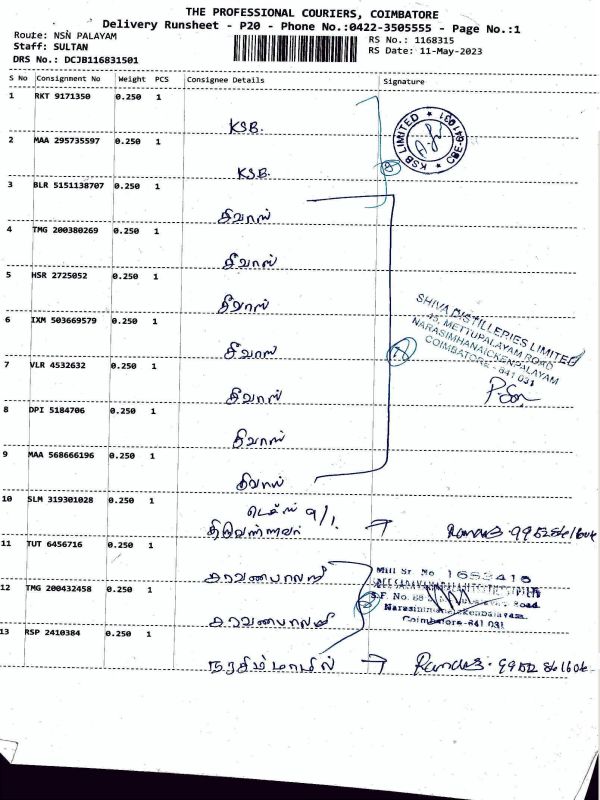 THE PROFESSIONAL COURIERS, COIMBATORE
Delivery Runsheet - P20 - Phone No.:0422-3505555 - Page No.:1
Route: NSN PALAYAM
Staff: SULTAN
DRS No.: DCJB116831501
RS No.: 1168315
RS Date: 11-May-2023
S No Consignment No Weight PCS Consignee Details Signature
1 RKT 9171350 0.250 1
KSB.
KSB LIMITED
2 MAA 295735597 0.250 1
KSB.
3 BLR 5151138707 0.250 1
சிவாஸ்
4 TMG 200380269 0.250 1
சிவாஸ்
5 HSR 2725052 0.250 1
சிவாஸ்
6 IXM 503669579 0.250 1
சிவாஸ்
SHIVA DISTILLERIES LIMITED
45, METTUPALAYAM ROAD
NARASIMHANAICKENPALAYAM
COIMBATORE - 641 031
7 VLR 4532632 0.250 1
சிவாஸ்
8 DPI 5184706 0.250 1
சிவாஸ்
9 MAA 568666196 0.250 1
சிவாஸ்
10 SLM 319301028 0.250 1
11 TUT 6456716 0.250 1
Mill Sr. No 1653416
12 TMG 200432458 0.250 1
Narasimhanaickenpalayam.
Coimbatore-641 031
13 RSP 2410384 0.250 1